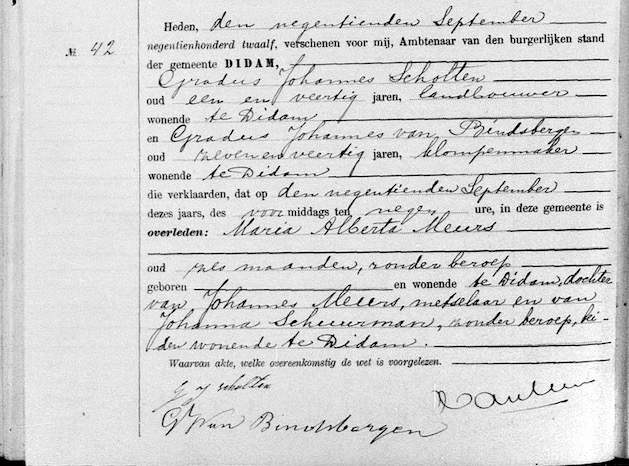 Heden, den negentienden September
№ 42
negentienhonderd twaalf, verschenen voor mij, Ambtenaar van den burgerlijken stand
der gemeente DIDAM,
Gradus Johannes Scholten
oud een en veertig jaren, landbouwer
wonende te Didam
en Gradus Johannes van Bindsbergen
oud zeven en veertig jaren, klompenmaker
wonende te Didam
die verklaarden, dat op den negentienden September
dezes jaars, des voormiddags ten negen ure, in deze gemeente is
overleden: Maria Alberta Meurs
oud zes maanden, zonder beroep
geboren en wonende te Didam, dochter
van Johannes Meurs, metselaar en van
Johanna Scheurman, zonder beroep, bei-
den wonende te Didam.
Waarvan akte, welke overeenkomstig de wet is voorgelezen.
G J Scholten
G J Van Bindsbergen